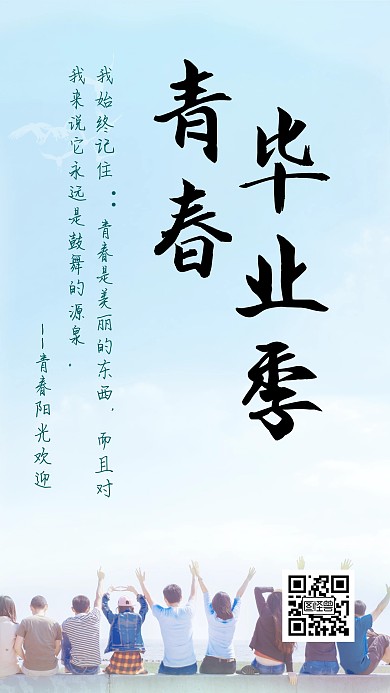 毕业季
青春
我始终记住：青春是美丽的东西，而且对
我来说它永远是鼓舞的源泉．
——青春阳光欢迎
图怪兽